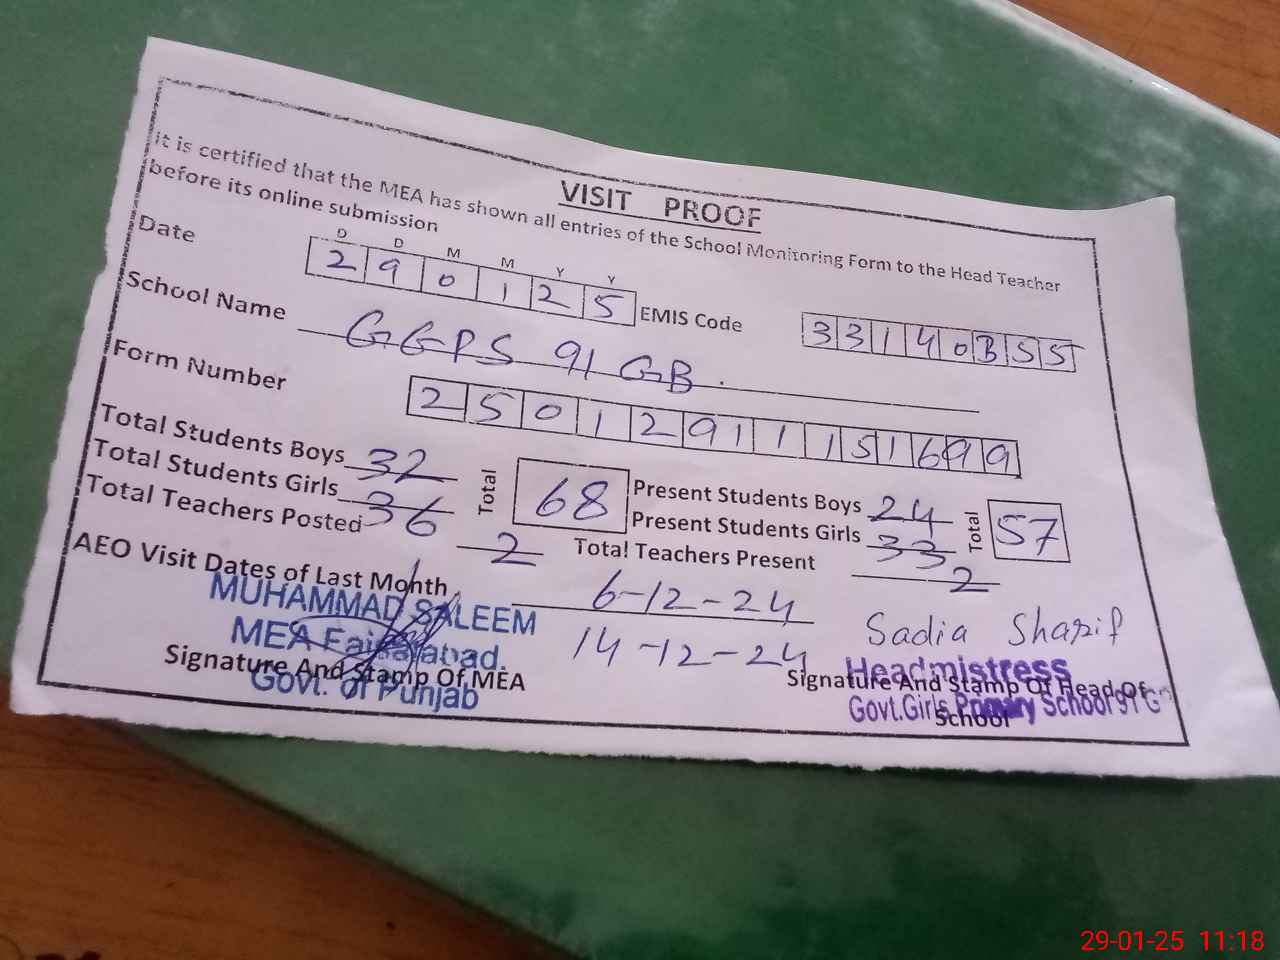 VISIT PROOF
it is certified that the MEA has shown all entries of the School Monitoring Form to the Head Teacher
before its online submission
D D M M Y Y
Date 2 9 0 1 2 5 EMIS Code 3 3 1 4 0 3 5 5
School Name GGPS 91 GB.
Form Number 2 5 0 1 2 9 1 1 1 5 1 6 9 9
Total Students Boys 32 Total 68 Present Students Boys 24 Total 57
Total Students Girls 36 Present Students Girls 33
Total Teachers Posted 2 Total Teachers Present 2
AEO Visit Dates of Last Month 6-12-24
14-12-24
MUHAMMAD SALEEM
MEA Faisalabad.
Govt. of Punjab
Signature And Stamp Of MEA
Sadia Sharif
Headmistress
Govt.Girls Primary School 91 G
Signature And Stamp Of Head Of
School
29-01-25 11:18